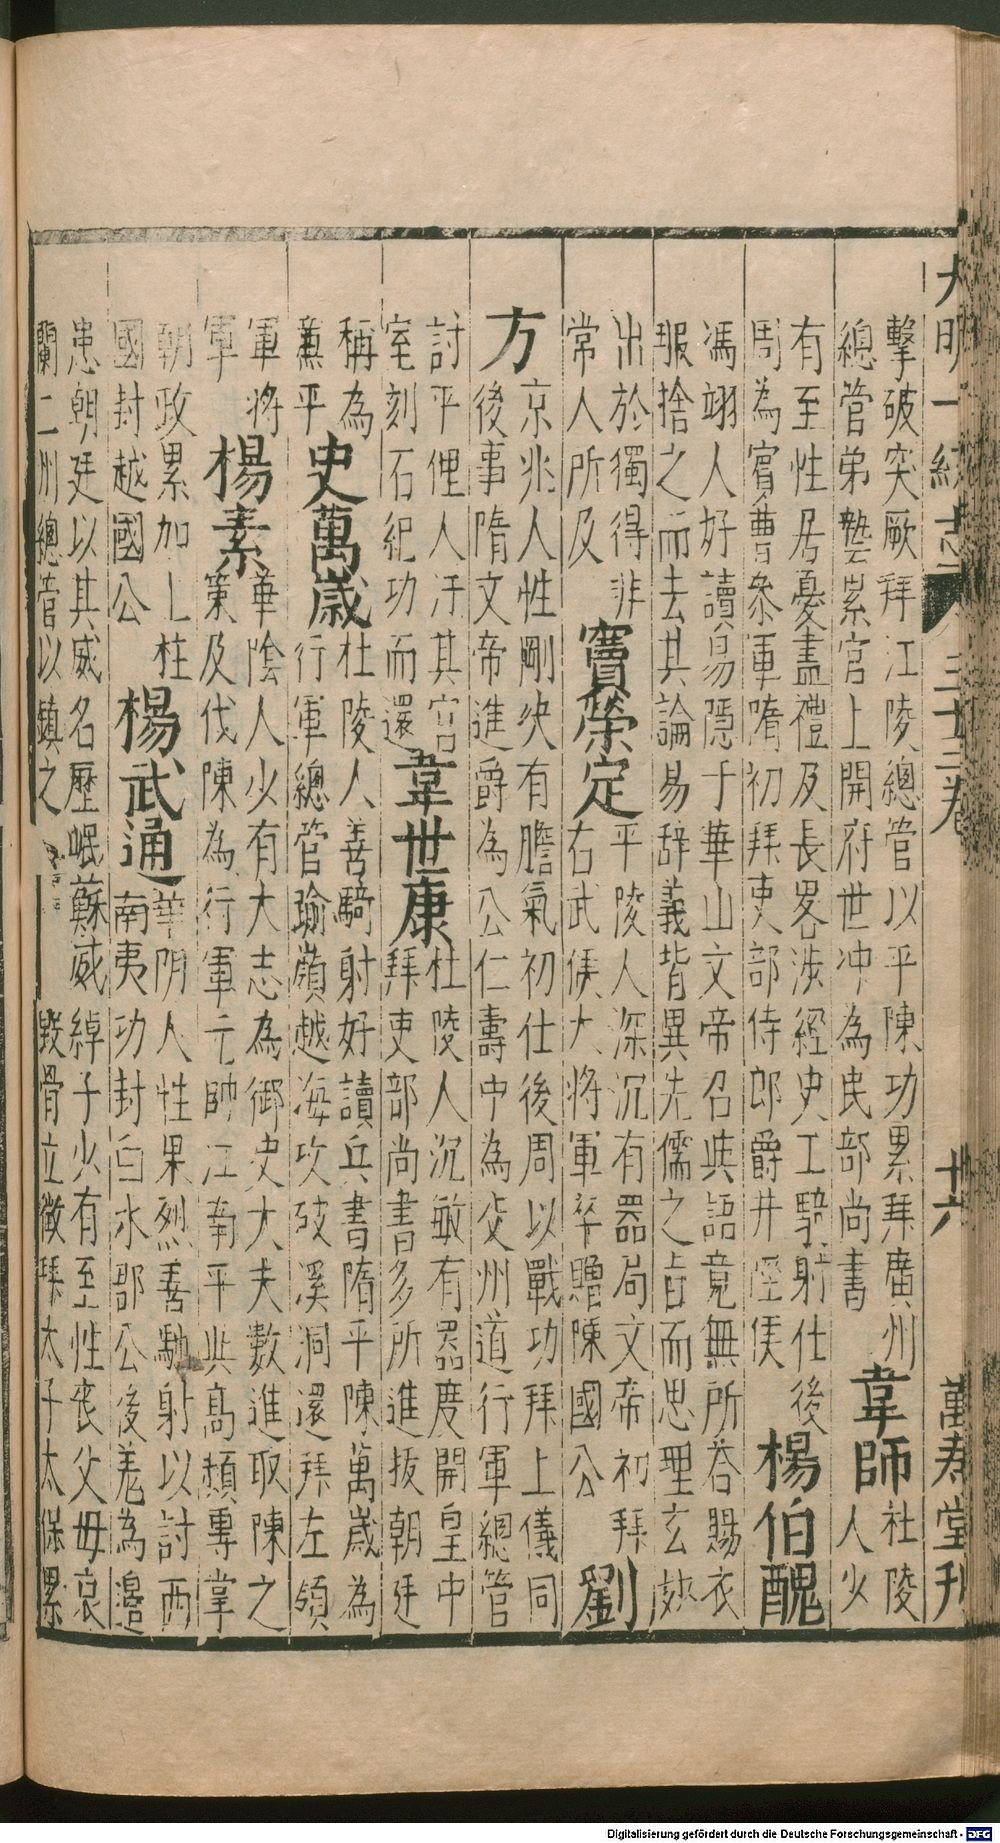 大明一統志 三十三卷 廿六 萬壽堂刊
擊破突厥拜江陵總管以平陳功累拜廣州
總管弟藝累官上開府世冲為民部尚書
韋師
杜陵
人少
有至性居憂盡禮及長畧涉經史工騎射仕後
周為賓曹參軍隋初拜吏部侍郎爵井陘侯
楊伯醜
馮翊人好讀易隱于華山文帝召與語竟無所荅賜衣
服捨之而去其論易辞義皆異先儒之旨而思理玄妙
出於獨得非
常人所及
竇榮定
平陵人深沉有器局文帝初拜
右武侯大將軍卒贈陳國公
劉
方
京兆人性剛决有膽氣初仕後周以戰功拜上儀同
後事隋文帝進爵為公仁壽中為交州道行軍總管
討平俚人汙其宮
室刻石紀功而還
韋世康
杜陵人沉敏有器度開皇中
拜吏部尚書多所進拔朝廷
稱為
薫平
史萬歲
杜陵人善騎射好讀兵書隋平陳萬歲為
行軍總管踰嶺越海攻破溪洞還拜左領
軍將
軍
楊素
華陰人少有大志為御史大夫數進取陳之
策及伐陳為行軍元帥江南平與高熲專掌
朝政累加上柱
國封越國公
楊武通
華陰人性果烈善馳射以討西
南夷功封白水郡公後羌為邊
患朝廷以其威名歷岷
蘭二州總管以鎮之
蘇威
綽子少有至性丧父毋哀
毀骨立徵拜太子太保累